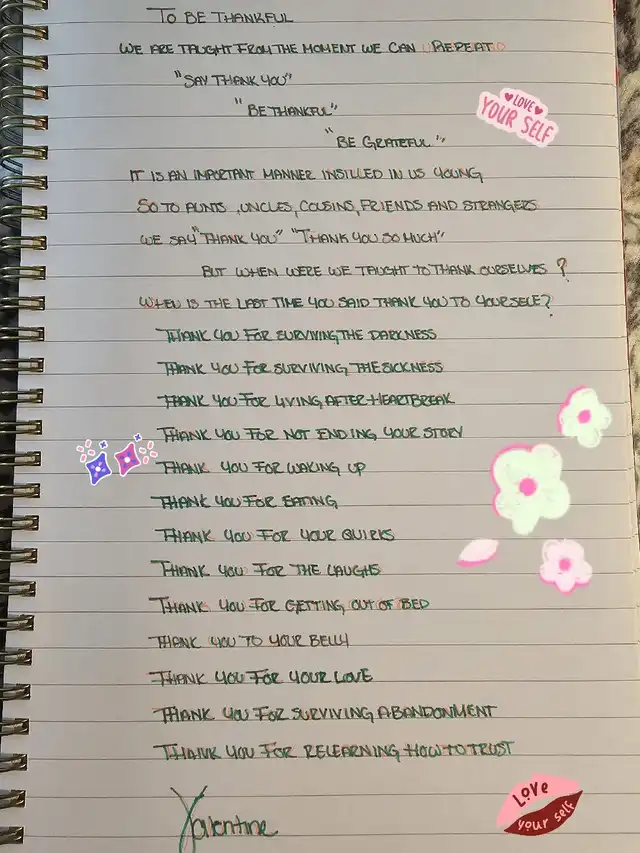 TO BE THANKFUL
WE ARE TAUGHT FROM THE MOMENT WE CAN REPEAT
"SAY THANK YOU"
"BE THANKFUL"
"BE GRATEFUL"
LOVE
YOUR SELF
IT IS AN IMPORTANT MANNER INSILLED IN US YOUNG
SO TO AUNTS, UNCLES, COUSINS, FRIENDS AND STRANGERS
WE SAY "THANK YOU" "THANK YOU SO MUCH"
BUT WHEN WERE WE TAUGHT TO THANK OURSELVES?
WHEN IS THE LAST TIME YOU SAID THANK YOU TO YOURSELF?
THANK YOU FOR SURVIVING THE DARKNESS
THANK YOU FOR SURVIVING THE SICKNESS
THANK YOU FOR LIVING AFTER HEARTBREAK
THANK YOU FOR NOT ENDING YOUR STORY
THANK YOU FOR WAKING UP
THANK YOU FOR EATING
THANK YOU FOR YOUR QUIRKS
THANK YOU FOR THE LAUGHS
THANK YOU FOR GETTING OUT OF BED
THANK YOU TO YOUR BELLY
THANK YOU FOR YOUR LOVE
THANK YOU FOR SURVIVING ABANDONMENT
THANK YOU FOR RELEARNING HOW TO TRUST
Valentine
Love
your self